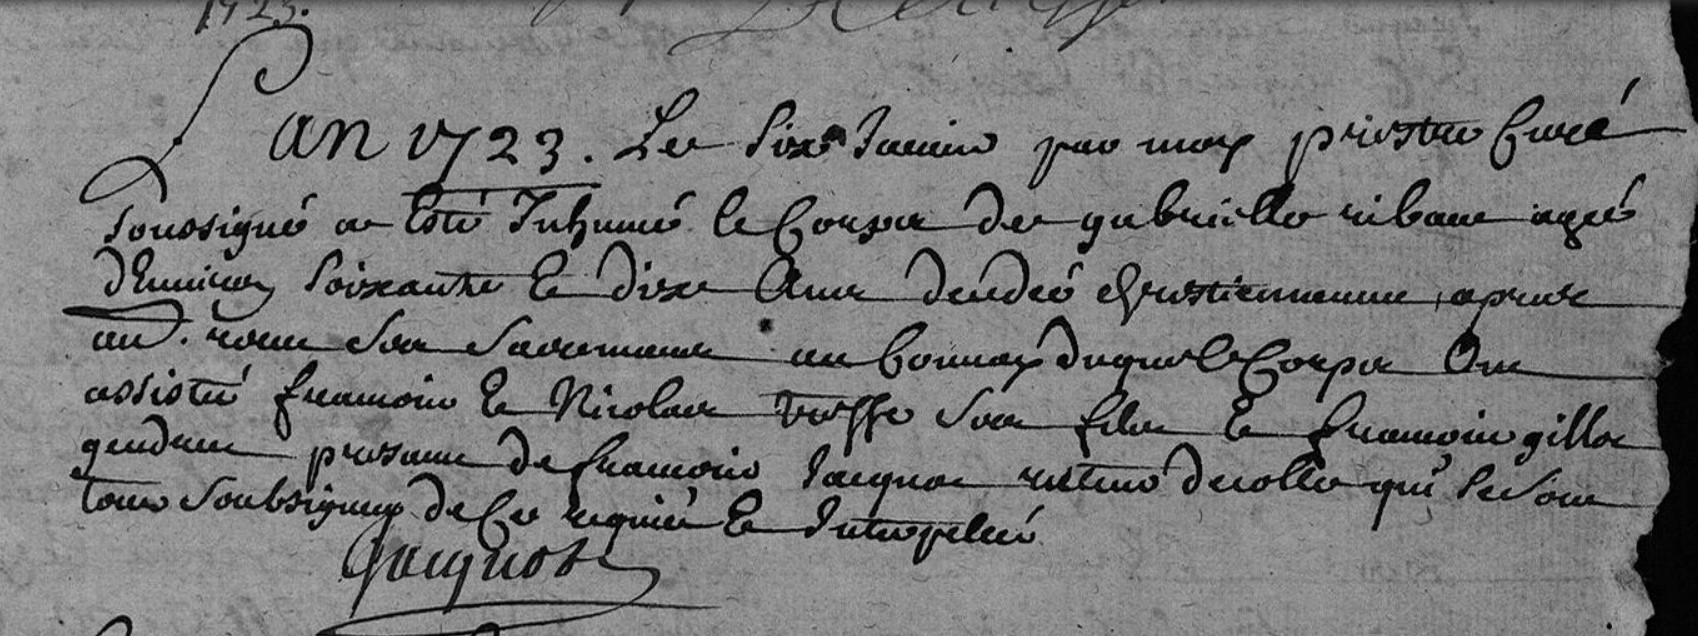 1723.
L'an 1723. Le six Janvier par moy prestre Curé
soussigné a esté Inhumé le Corps de gabrielle ribau agée
d'Environ soixante et dixe Ans decedeé chrestiennement apres
avoir receu ses sacremens au Convoy duquel Corps Ont
assisté francois et Nicolas ses fils et francois gillot
gendre presence de francois Jacquot recteur d'ecolle qui se sont
tous soubsignez de Ce requis et Interpellés
Jacquot